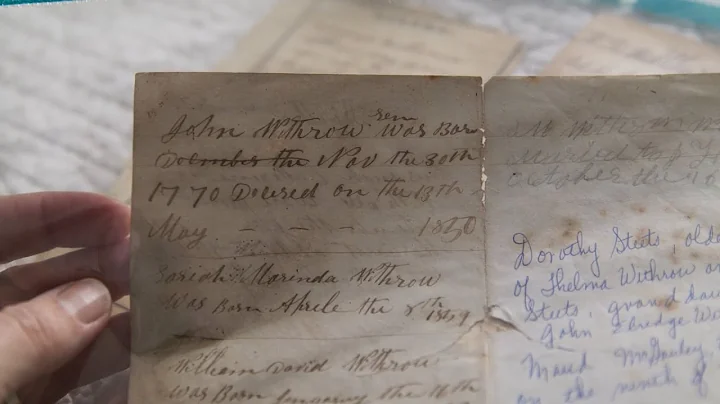 John Withrow sen Was Born
Decmber the Nov the 30th
1770 Decesed on the 13th
May - - - 1850
Sariah Marinda Withrow
Was Born Aprile the 8th 1849
William David Withrow
Was Born the 16th
Maried to
October the
Dorothy Steets, olde
of Thelma Withrow an
Steets, grand dau
John Ebredge Wi
Maud McDanley,
on the ninth of